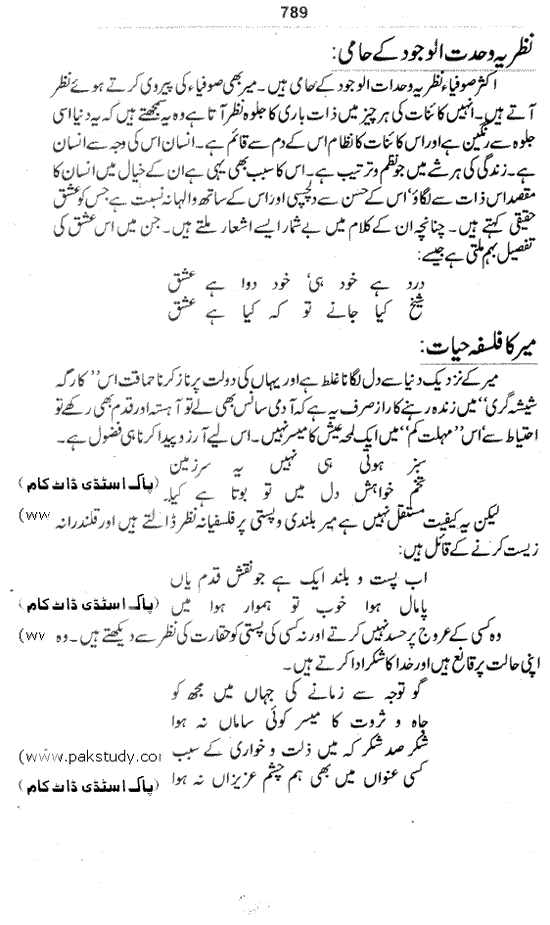 789
نظریہ وحدت الوجود کے حامی:
اکثر صوفیاء نظریہ وحدات الوجود کے حامی ہیں۔ میر بھی صوفیاء کی پیروی کرتے ہوئے نظر
آتے ہیں۔ انہیں کائنات کی ہر چیز میں ذات باری کا جلوہ نظر آتا ہے وہ یہ سمجھتے ہیں کہ یہ دنیا اسی
جلوہ سے رنگین ہے اور اس کائنات کا نظام اس کے دم سے قائم ہے۔ انسان اس کی وجہ سے انسان
ہے۔ زندگی کی ہر شے میں جو نظم و ترتیب ہے۔ اس کا سبب بھی یہی ہے ان کے خیال میں انسان کا
مقصد اس ذات سے لگاؤ‘ اس کے حسن سے دلچسپی اور اس کے ساتھ والہانہ نسبت ہے جس کو عشق
حقیقی کہتے ہیں۔ چنانچہ ان کے کلام میں بے شمار ایسے اشعار ملتے ہیں۔ جن میں اس عشق کی
تفصیل بہم ملتی ہے جیسے:
درد ہے خود ہی‘ خود دوا ہے عشق
شیخ کیا جانے تو کہ کیا ہے عشق
میر کا فلسفہ حیات:
میر کے نزدیک دنیا سے دل لگانا غلط ہے اور یہاں کی دولت پر ناز کرنا حماقت اس ’’کارگہ
شیشہ گری‘‘ میں زندہ رہنے کا راز صرف یہ ہے کہ آدمی سانس بھی لے تو آہستہ اور قدم بھی رکھے تو
احتیاط سے‘ اس ’’مہلت کم‘‘ میں ایک لمحہ عیش کا میسر نہیں۔ اس لیے آرزو پیدا کرنا ہی فضول ہے۔
سبز ہوتی ہی نہیں یہ سرزمین
تخم خواہش دل میں تو بوتا ہے کیا۔ (پاک اسٹڈی ڈاٹ کام)
لیکن یہ کیفیت مستقل نہیں ہے میر بلندی و پستی پر فلسفیانہ نظر ڈالتے ہیں اور قلندرانہ (ww
زیست کرنے کے قائل ہیں:
اب پست و بلند ایک ہے جو نقش قدم یاں
پامال ہوا خوب تو ہموار ہوا میں (پاک اسٹڈی ڈاٹ کام)
وہ کسی کے عروج پر حسد نہیں کرتے اور نہ کسی کی پستی کو حقارت کی نظر سے دیکھتے ہیں۔ وہ (wv
اپنی حالت پر قانع ہیں اور خدا کا شکر ادا کرتے ہیں۔
گو توجہ سے زمانے کی جہاں میں مجھ کو
جاہ و ثروت کا میسر کوئی ساماں نہ ہوا
شکر صد شکر کہ میں ذلت و خواری کے سبب (www.pakstudy.cor
کسی عنواں میں بھی ہم چشم عزیزاں نہ ہوا (پاک اسٹڈی ڈاٹ کام)